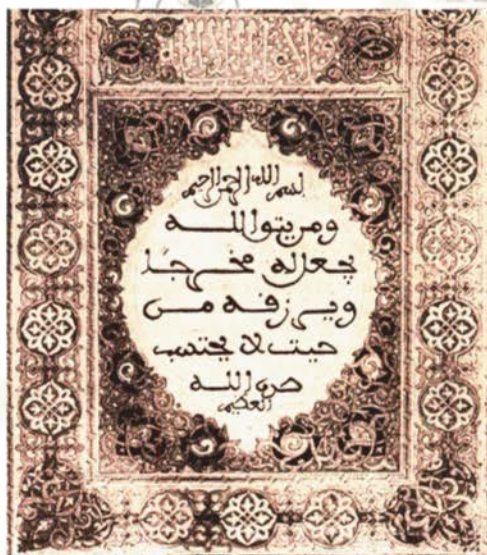 بسم الله الرحمن الرحيم
ومن يتق الله
يجعل له مخرجا
ويرزقه من
حيث لا يحتسب
صدق الله
العظيم